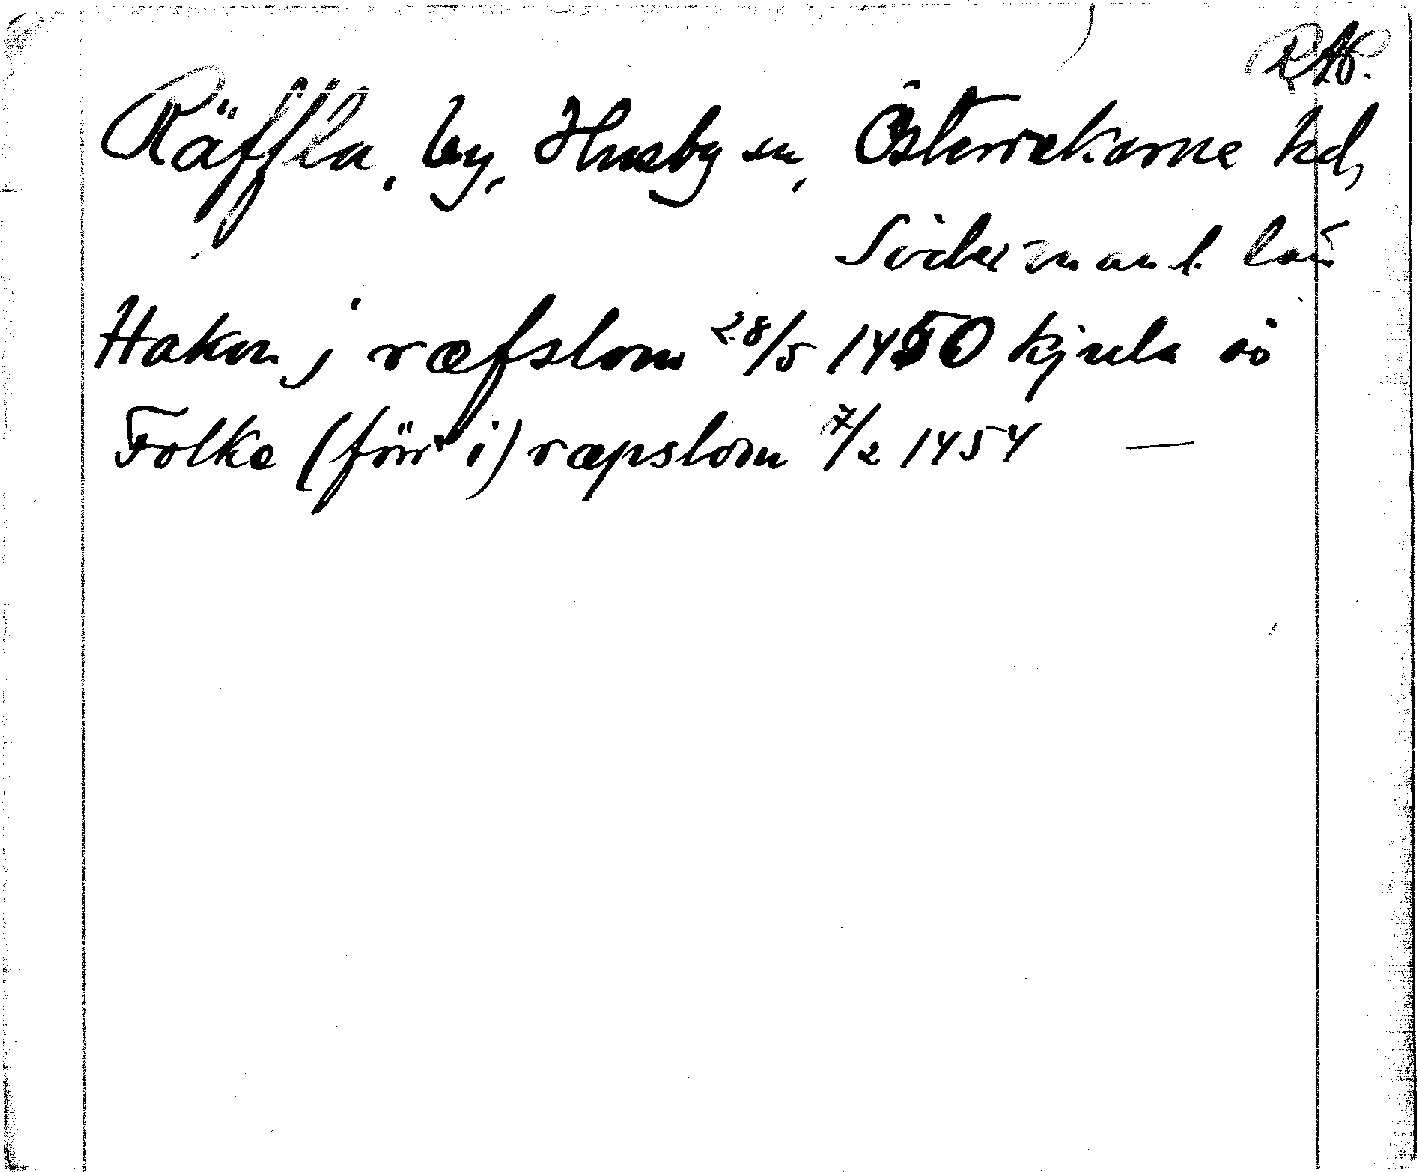 RAp.
Räffla, by, Husby sn, Österrekarne hd,
Södermanl. län
Hakon j ræfslom 28/5 1450 kjula sö
Folke (förr i) ræpslom 7/2 1454 —